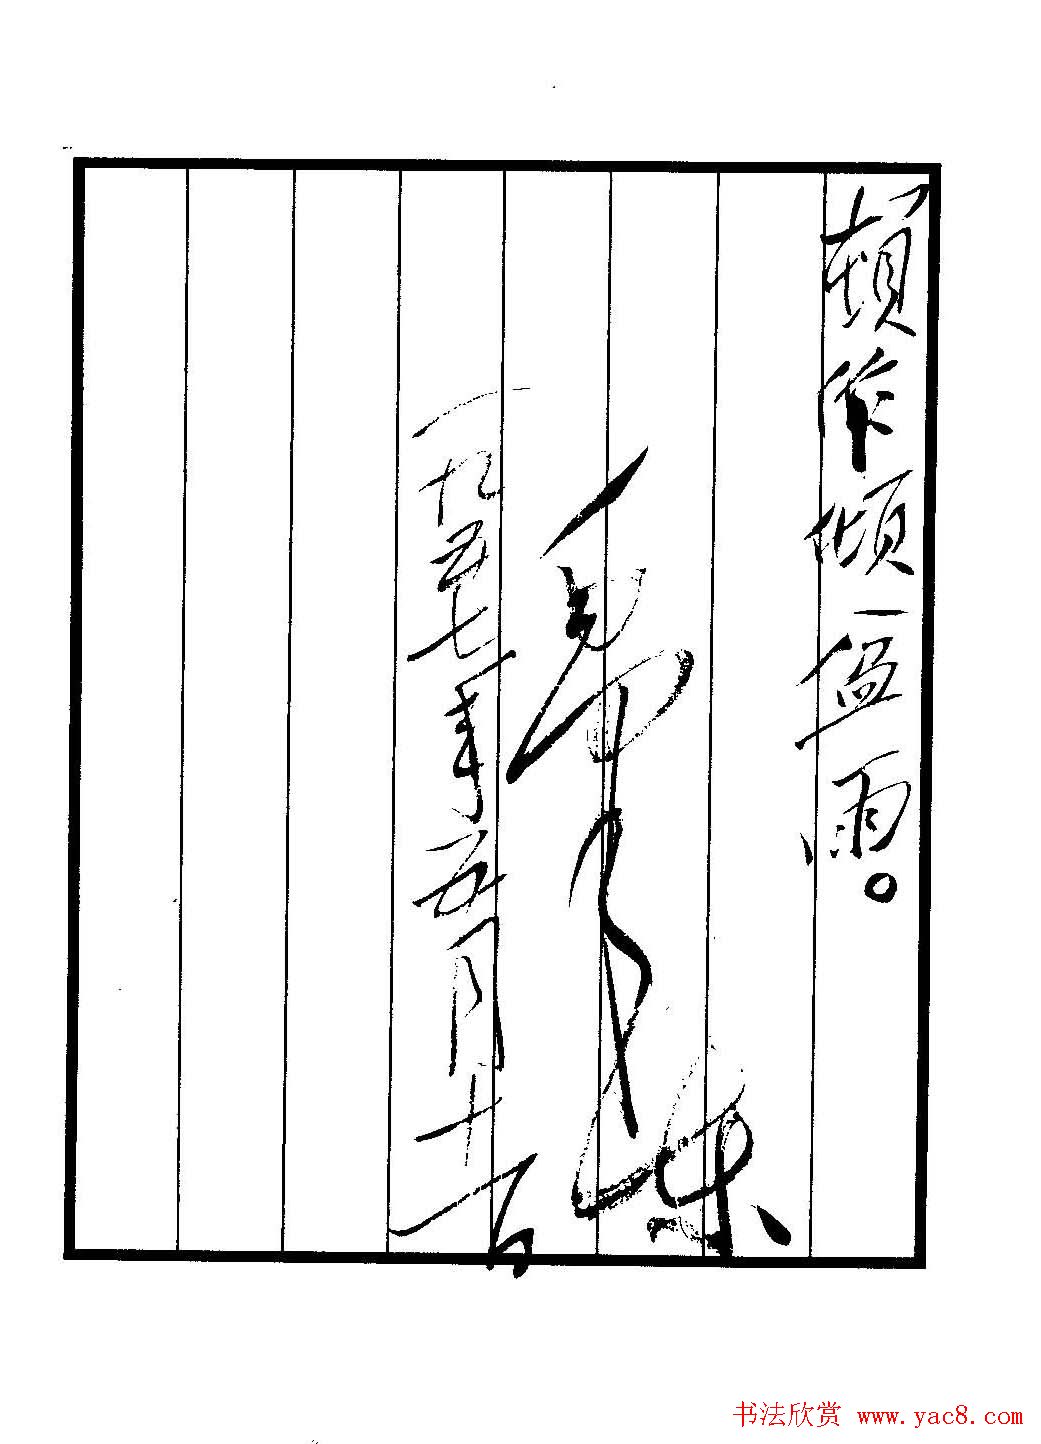 頓作傾盆雨。
毛澤东
一九五七年五月十一日
书法欣赏 www.yac8.com